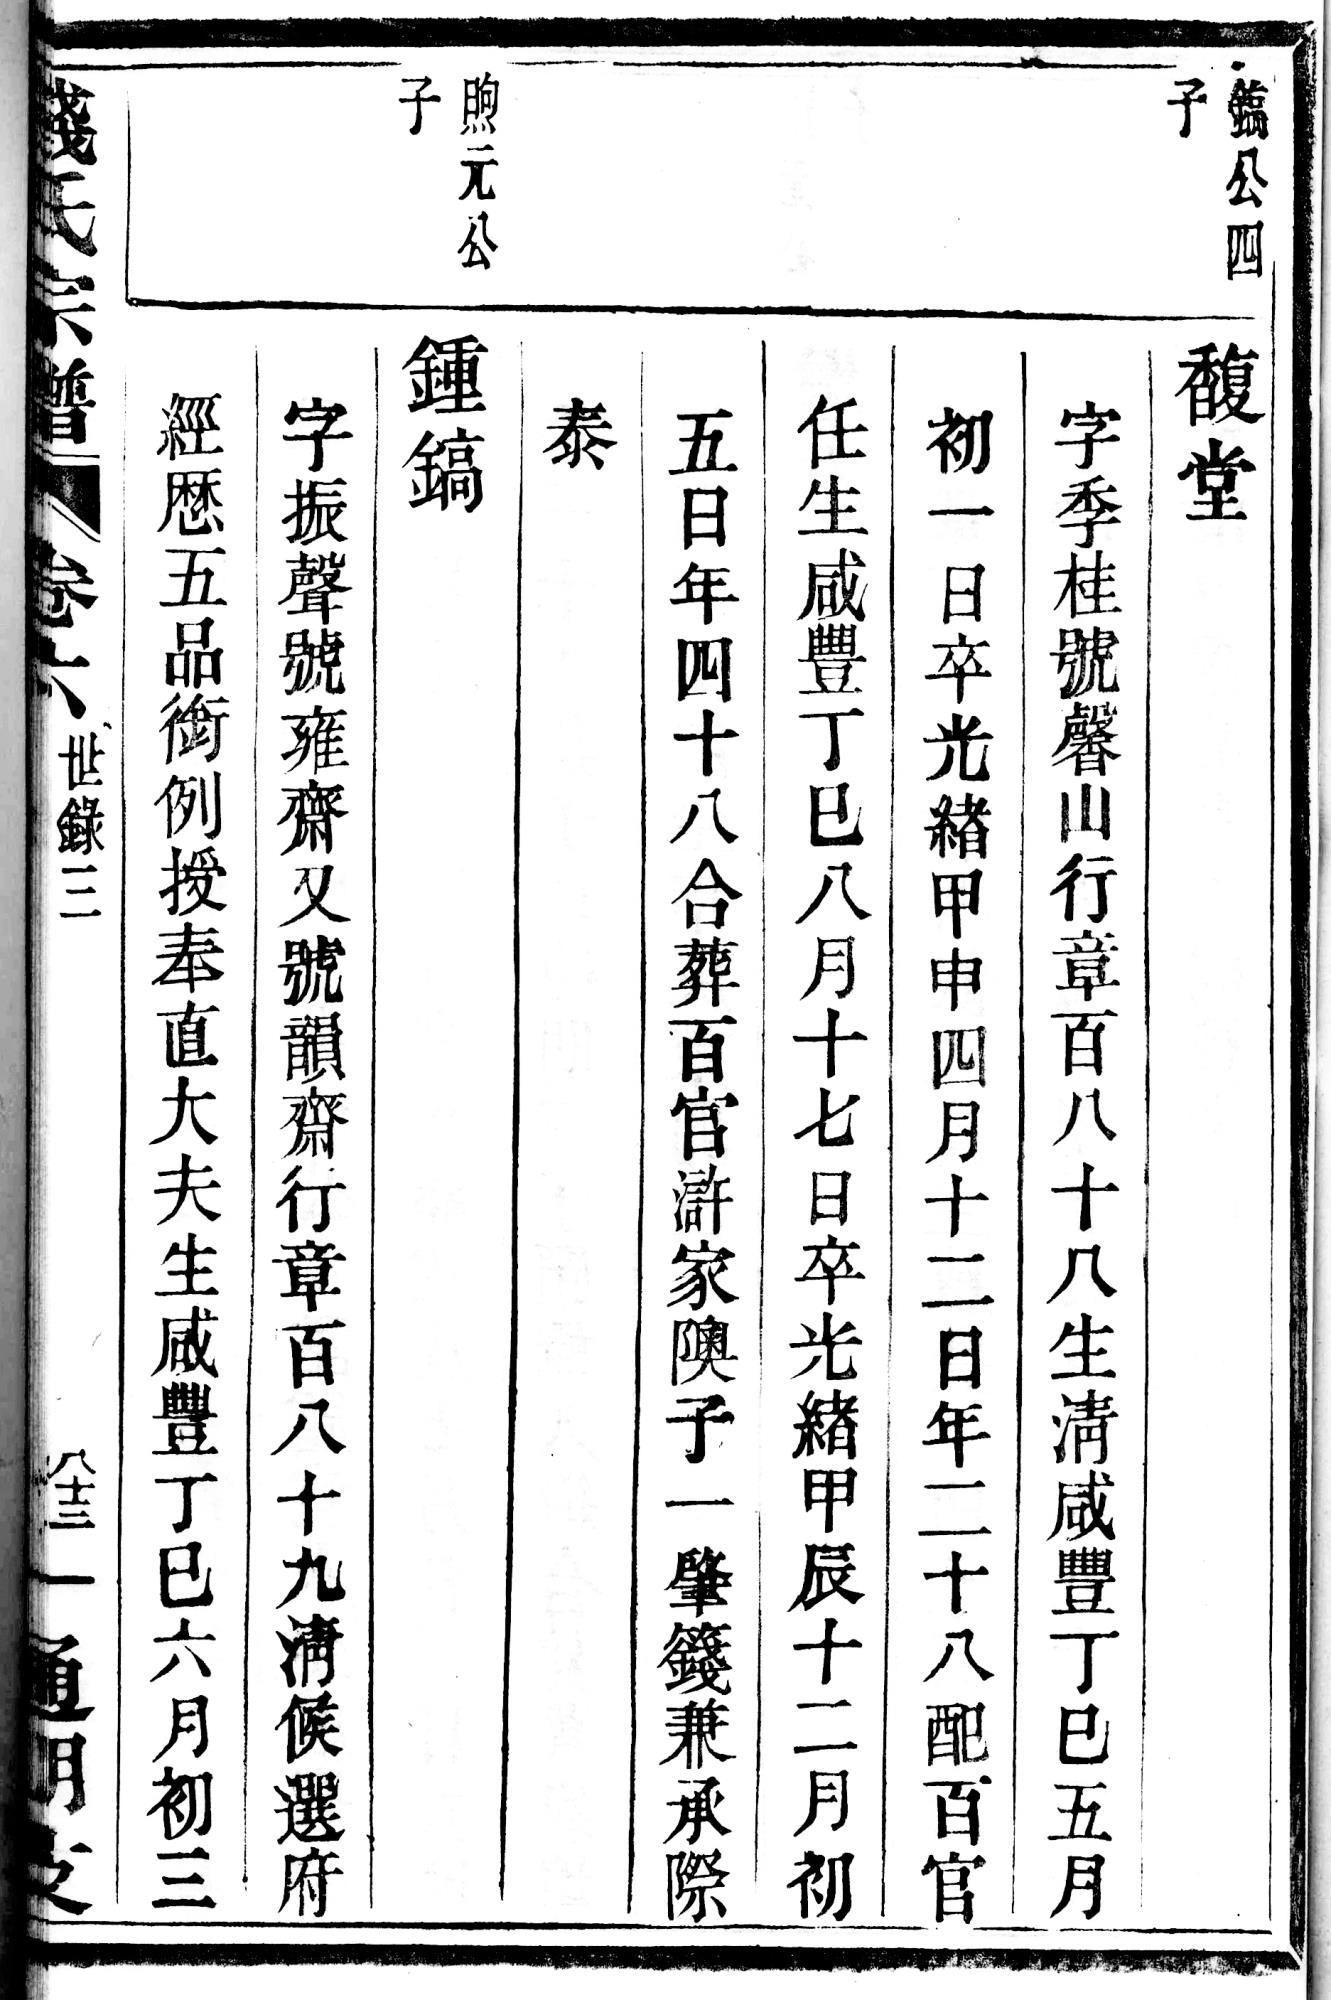 鎬公四
子
馥堂
字季桂號馨山行章百八十八生淸咸豐丁巳五月
初一日卒光緖甲申四月十二日年二十八配百官
任生咸豐丁巳八月十七日卒光緖甲辰十二月初
五日年四十八合葬百官滸家隩子一肇籛兼承際
泰
煦元公
子
鍾鎬
字振聲號雍齋又號韻齋行章百八十九淸候選府
經歷五品銜例授奉直大夫生咸豐丁巳六月初三
錢氏宗譜
卷六
世錄三
八十三
通明支